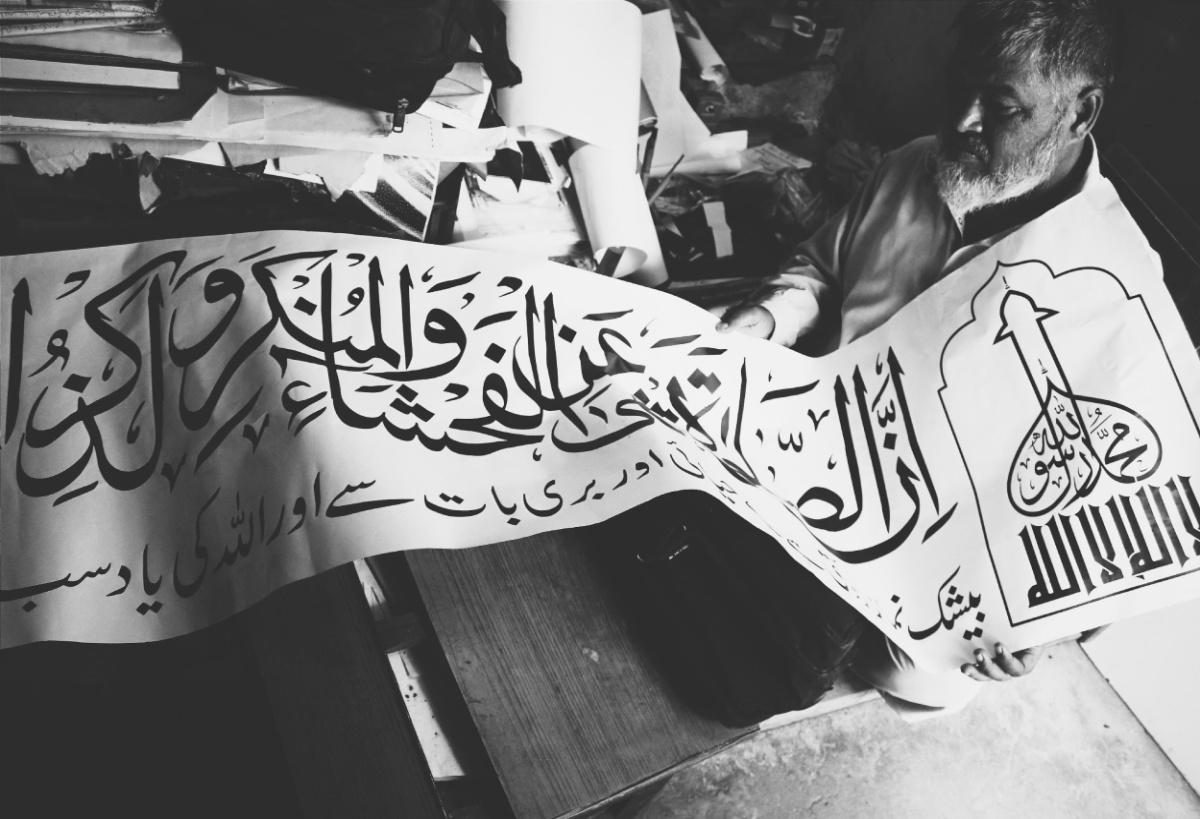 لا اله الا الله
محمد رسول الله
اِنَّ الصَّلٰوةَ تَنْهٰى عَنِ الْفَحْشَاءِ وَالْمُنْكَرِ وَلَذِكْرُ
بیشک اور بری بات سے اور اللہ کی یاد سب